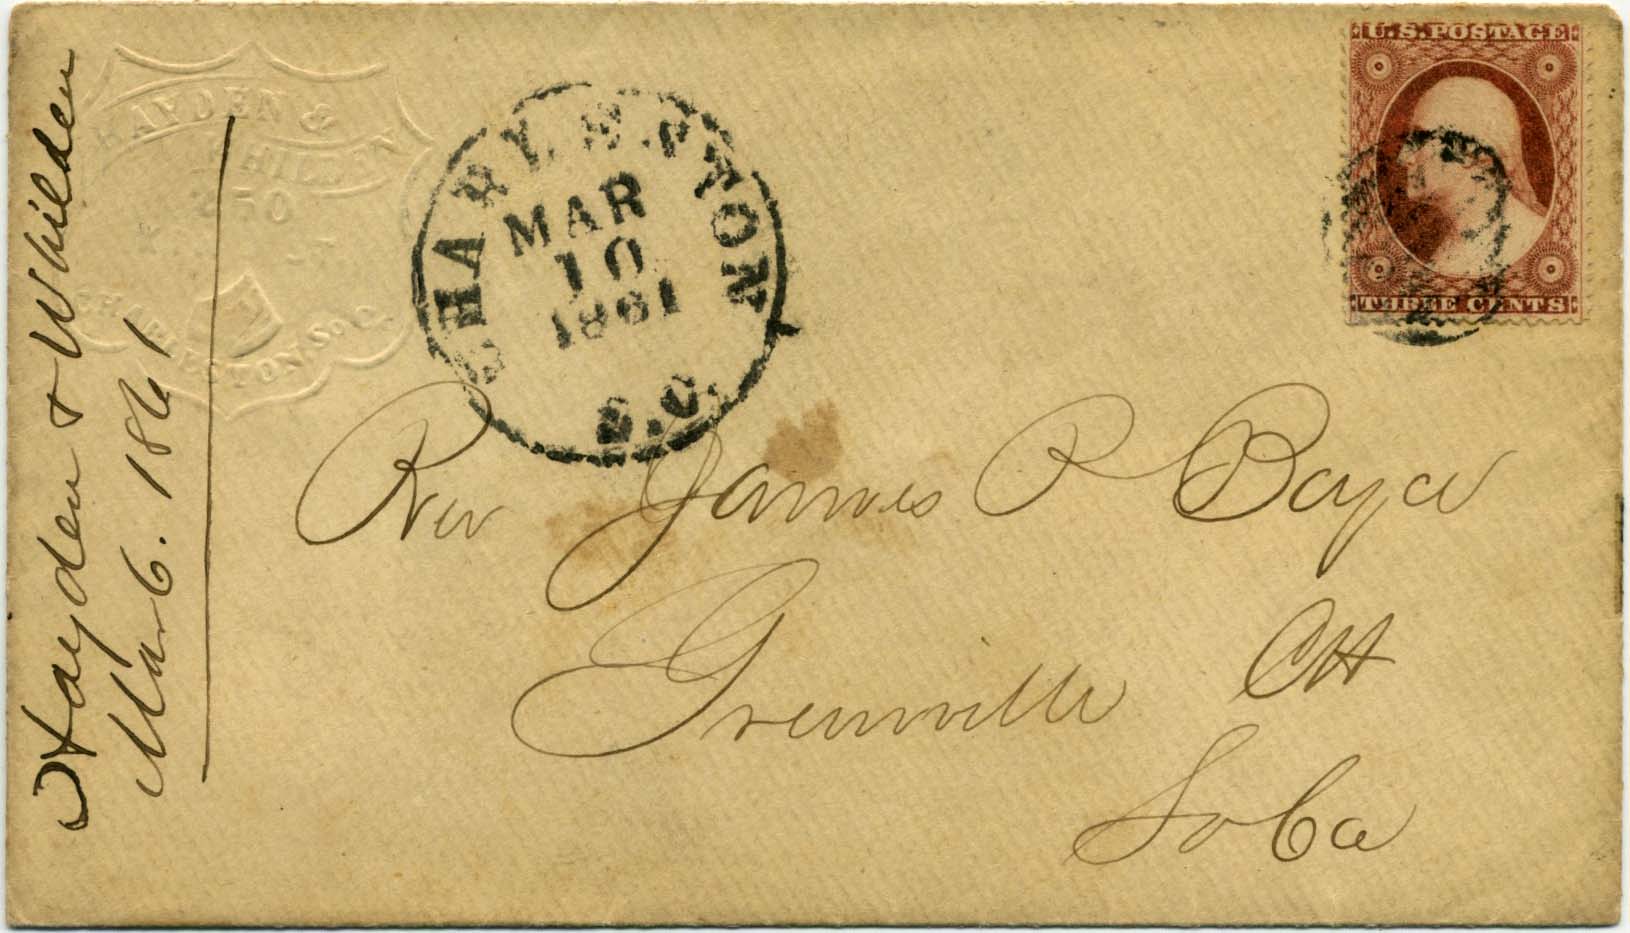 Hayden & Whilden
Mar 6. 1861
HAYDEN &
WHILDEN
250
CHARLESTON. So. Ca.
CHARLESTON
MAR
10
1861
S.C.
U.S. POSTAGE
THREE CENTS
Rev James P Boyce
Greenville CH
So Ca